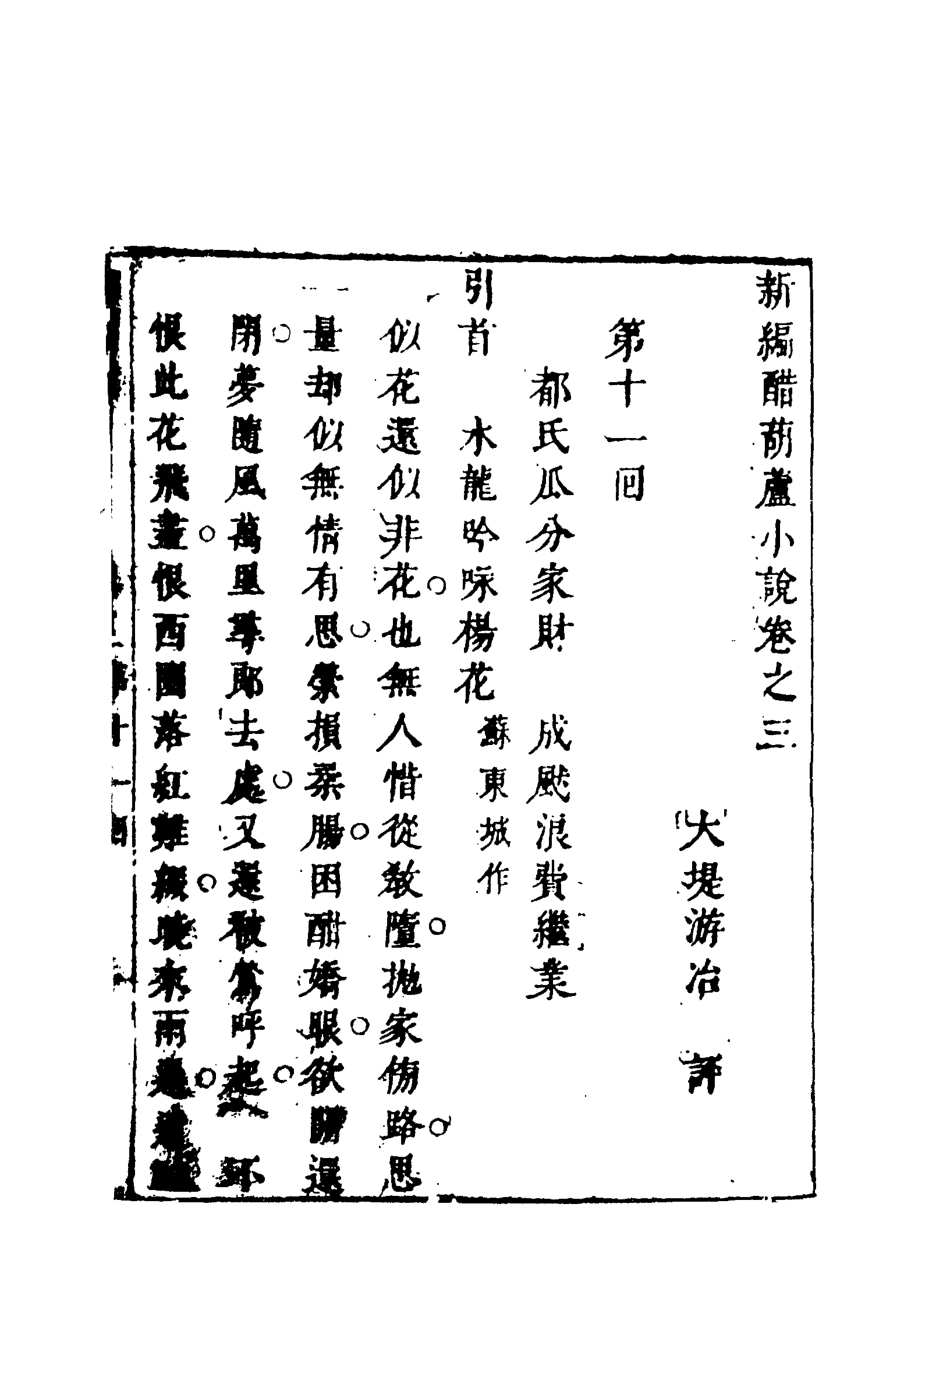 新編醋葫蘆小說卷之三
大堤游冶　評
第十一囘
都氏瓜分家財　成飈浪費繼業
引首　水龍吟咏楊花　蘇東城作
似花還似非花。也無人惜從教墮。拋家傍路。思
量却似無情有思。縈損柔腸。困酣嬌眼。欲開還
閉。夢隨風萬里尋郎去處。又還被鶯呼起。　不
恨此花飛盡。恨西園落紅難綴。曉來雨過。遺